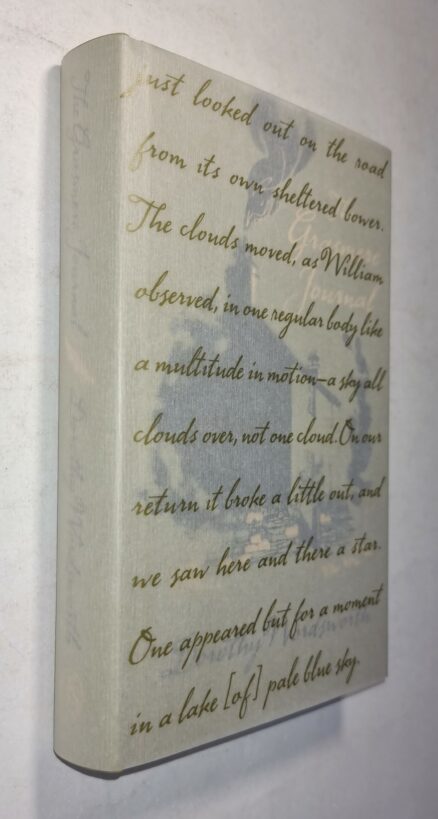 just looked out on the road
from its own sheltered bower.
The clouds moved, as William
observed, in one regular body like
a multitude in motion—a sky all
clouds over, not one cloud. On our
return it broke a little out, and
we saw here and there a star.
One appeared but for a moment
in a lake [of] pale blue sky.
Grasmere
Journal
Dorothy Wordsworth